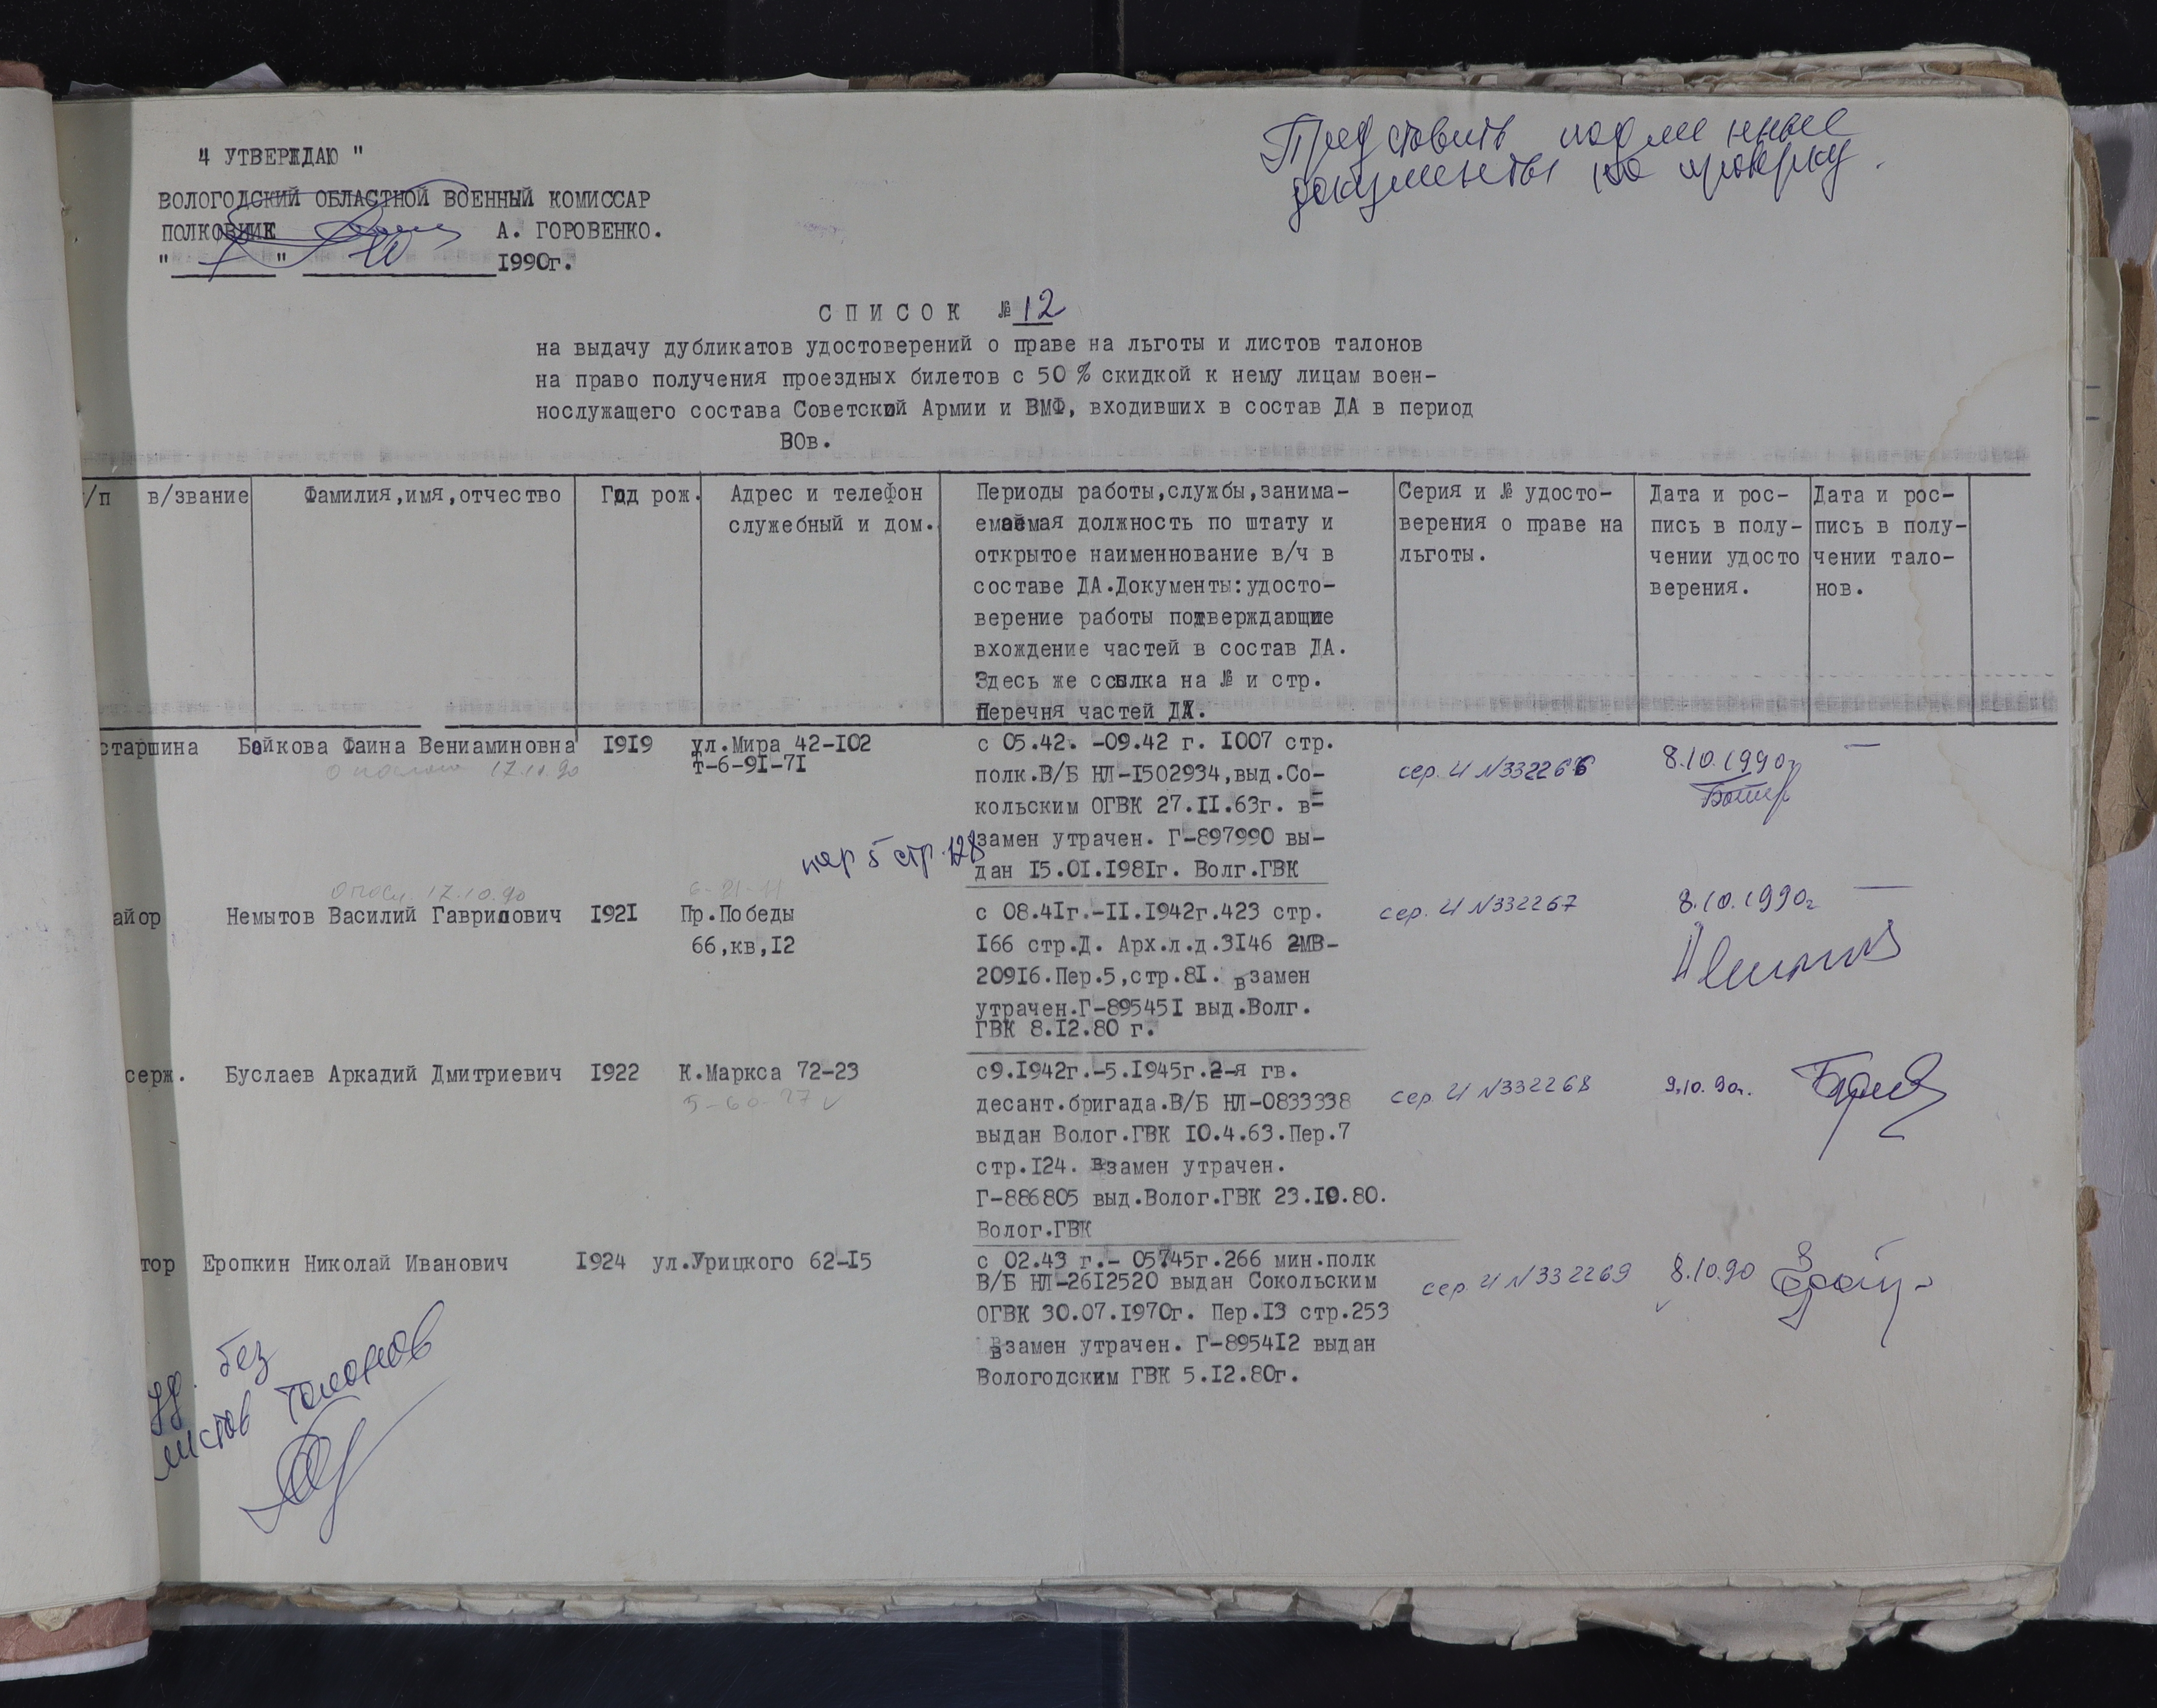 Представить подлинные
документы на проверку.
4 УТВЕРЖДАЮ "
ВОЛОГОДСКИЙ ОБЛАСТНОЙ ВОЕННЫЙ КОМИССАР
ПОЛКОВНИК А. ГОРОВЕНКО.
" " 10 1990г.
СПИСОК № 12
на выдачу дубликатов удостоверений о праве на льготы и листов талонов
на право получения проездных билетов с 50 % скидкой к нему лицам воен-
нослужащего состава Советской Армии и ВМФ, входивших в состав ДА в период
ВОв.
/п в/звание
Фамилия,имя,отчество
Год рож.
Адрес и телефон
служебный и дом.
Периоды работы,службы,занима-
емаемая должность по штату и
открытое наименнование в/ч в
составе ДА.Документы:удосто-
верение работы подтверждающие
вхождение частей в состав ДА.
Здесь же ссылка на № и стр.
Перечня частей ДА.
Серия и № удосто-
верения о праве на
льготы.
Дата и рос-
пись в полу-
чении удосто
верения.
Дата и рос-
пись в полу-
чении тало-
нов.
старшина
Бойкова Фаина Вениаминовна
17.10.90
1919
ул.Мира 42-102
т-6-91-71
с 05.42. -09.42 г. 1007 стр.
полк.В/Б НЛ-1502934,выд.Со-
кольским ОГВК 27.11.63г. в-
замен утрачен. Г-897990 вы-
дан 15.01.1981г. Волг.ГВК
пер 5 стр.128
сер. И №332266
8.10.1990г
—
айор
17.10.90
Немытов Василий Гаврилович
1921
6-21-11
Пр.Победы
66,кв,12
с 08.41г.-11.1942г.423 стр.
166 стр.Д. Арх.л.д.3146 2МВ-
20916.Пер.5,стр.81. взамен
утрачен.Г-895451 выд.Волг.
ГВК 8.12.80 г.
сер. И №332267
8.10.1990г
—
серж.
Буслаев Аркадий Дмитриевич
1922
К.Маркса 72-23
5-60-27 ✓
с9.1942г.-5.1945г.2-я гв.
десант.бригада.В/Б НЛ-0833338
выдан Волог.ГВК 10.4.63.Пер.7
стр.124. взамен утрачен.
Г-886805 выд.Волог.ГВК 23.10.80.
Волог.ГВК
сер. И №332268
9.10.90г.
тор
Еропкин Николай Иванович
1924
ул.Урицкого 62-15
с 02.43 г.- 05.45г.266 мин.полк
В/Б НЛ-2612520 выдан Сокольским
ОГВК 30.07.1970г. Пер.13 стр.253
взамен утрачен. Г-895412 выдан
Вологодским ГВК 5.12.80г.
сер. И №332269
8.10.90
уд. без
листов талонов